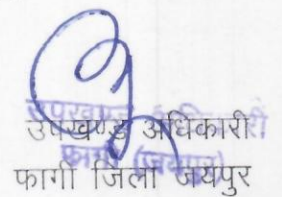 उपखण्ड अधिकारी
फागी (जयपुर)
उपखण्ड अधिकारी
फागी जिला जयपुर